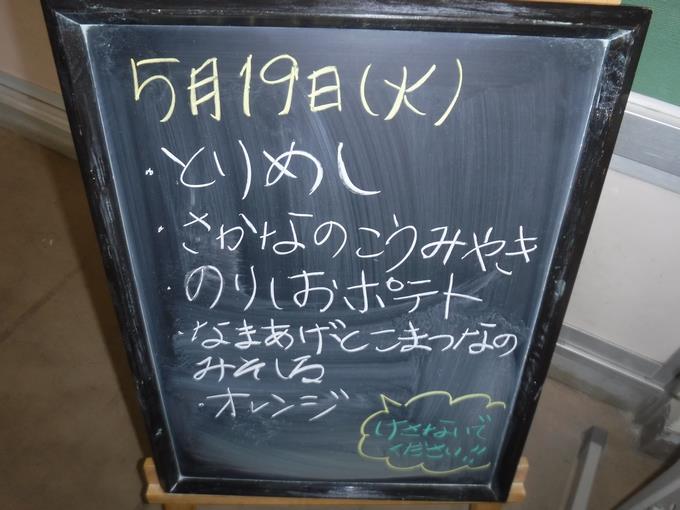 5月19日(火)
・とりめし
・さかなのこうみやき
・のりしおポテト
・なまあげとこまつなの
みそしる
・オレンジ
けさないで
ください!!